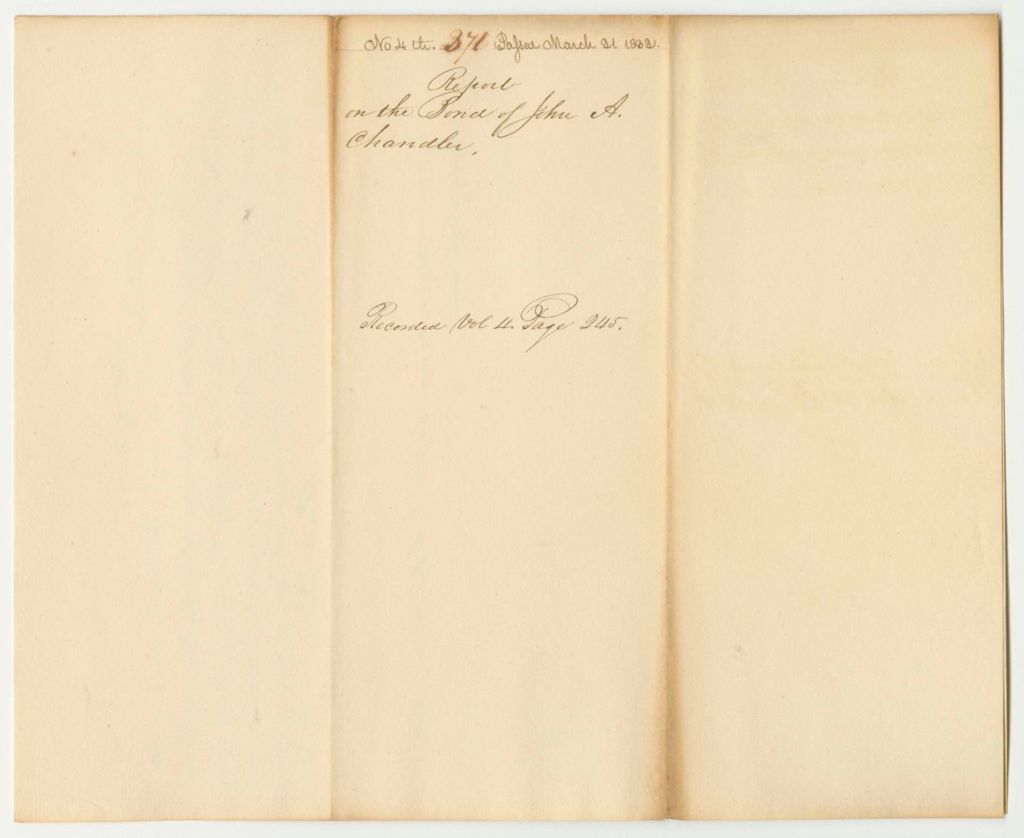 No 4 th. 371 Passed March 21 1832.
Report
on the Bond of John A.
Chandler.
Recorded Vol 4. Page 245.